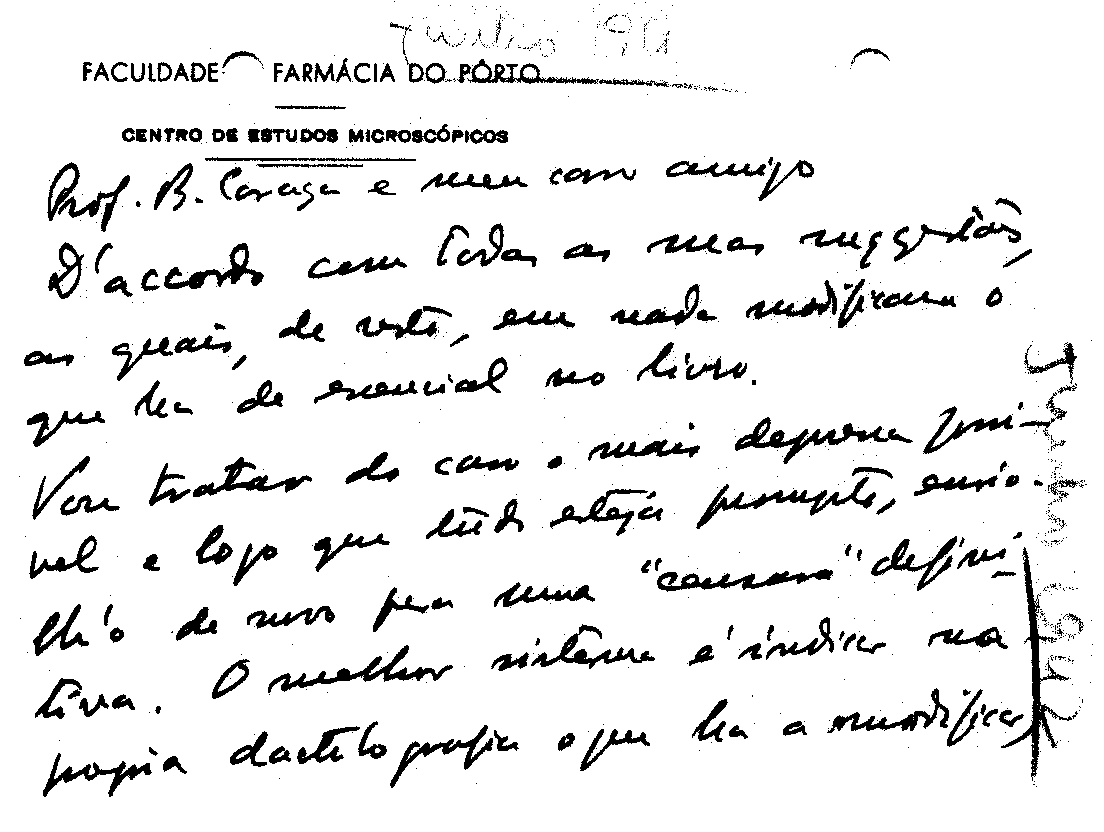 Julho 194
FACULDADE FARMÁCIA DO PÔRTO
CENTRO DE ESTUDOS MICROSCÓPICOS
Prof. B. Caraça e meu caro amigo
D'accordo com todas as suas suggestões,
as quais, de resto, em nada modificam o
que ha de essencial no livro.
Vou tratar do caso o mais depressa possi-
vel e logo que tudo esteja prompto, envio-
lh'o de novo para uma "censura" defini-
tiva. O melhor sistema é indicar na
propria dactilografia o que ha a modificar,
Junho 1942